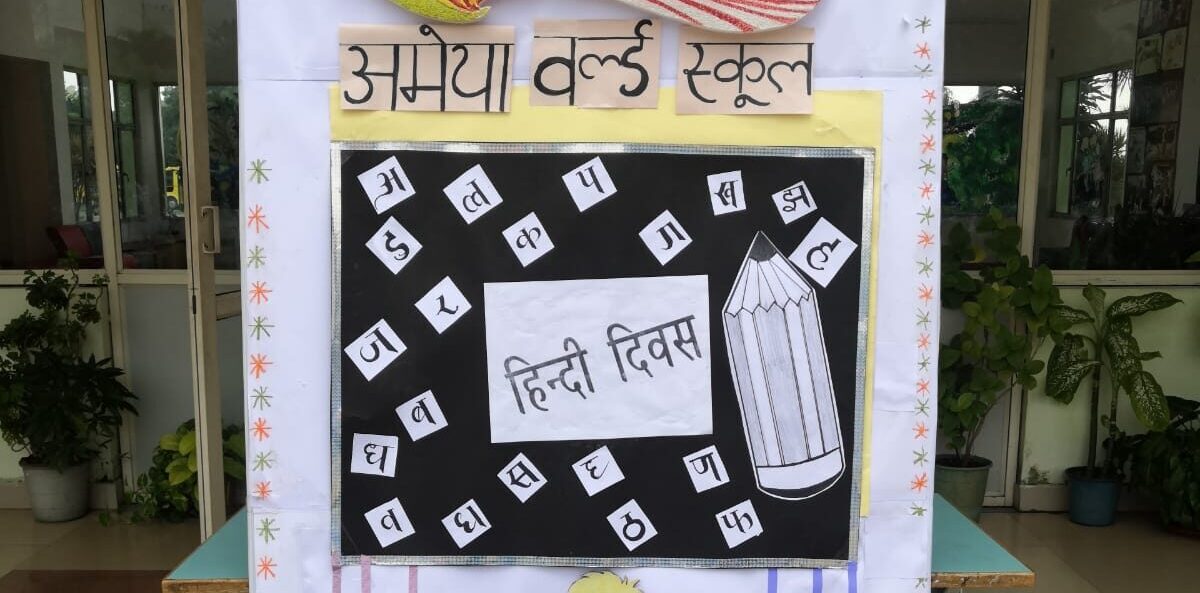 अमेया वर्ल्ड स्कूल
अ ल प ख झ
ड क ज ल
र
ज
हिन्दी दिवस
ब
ध स ह ण
व ध ठ फ